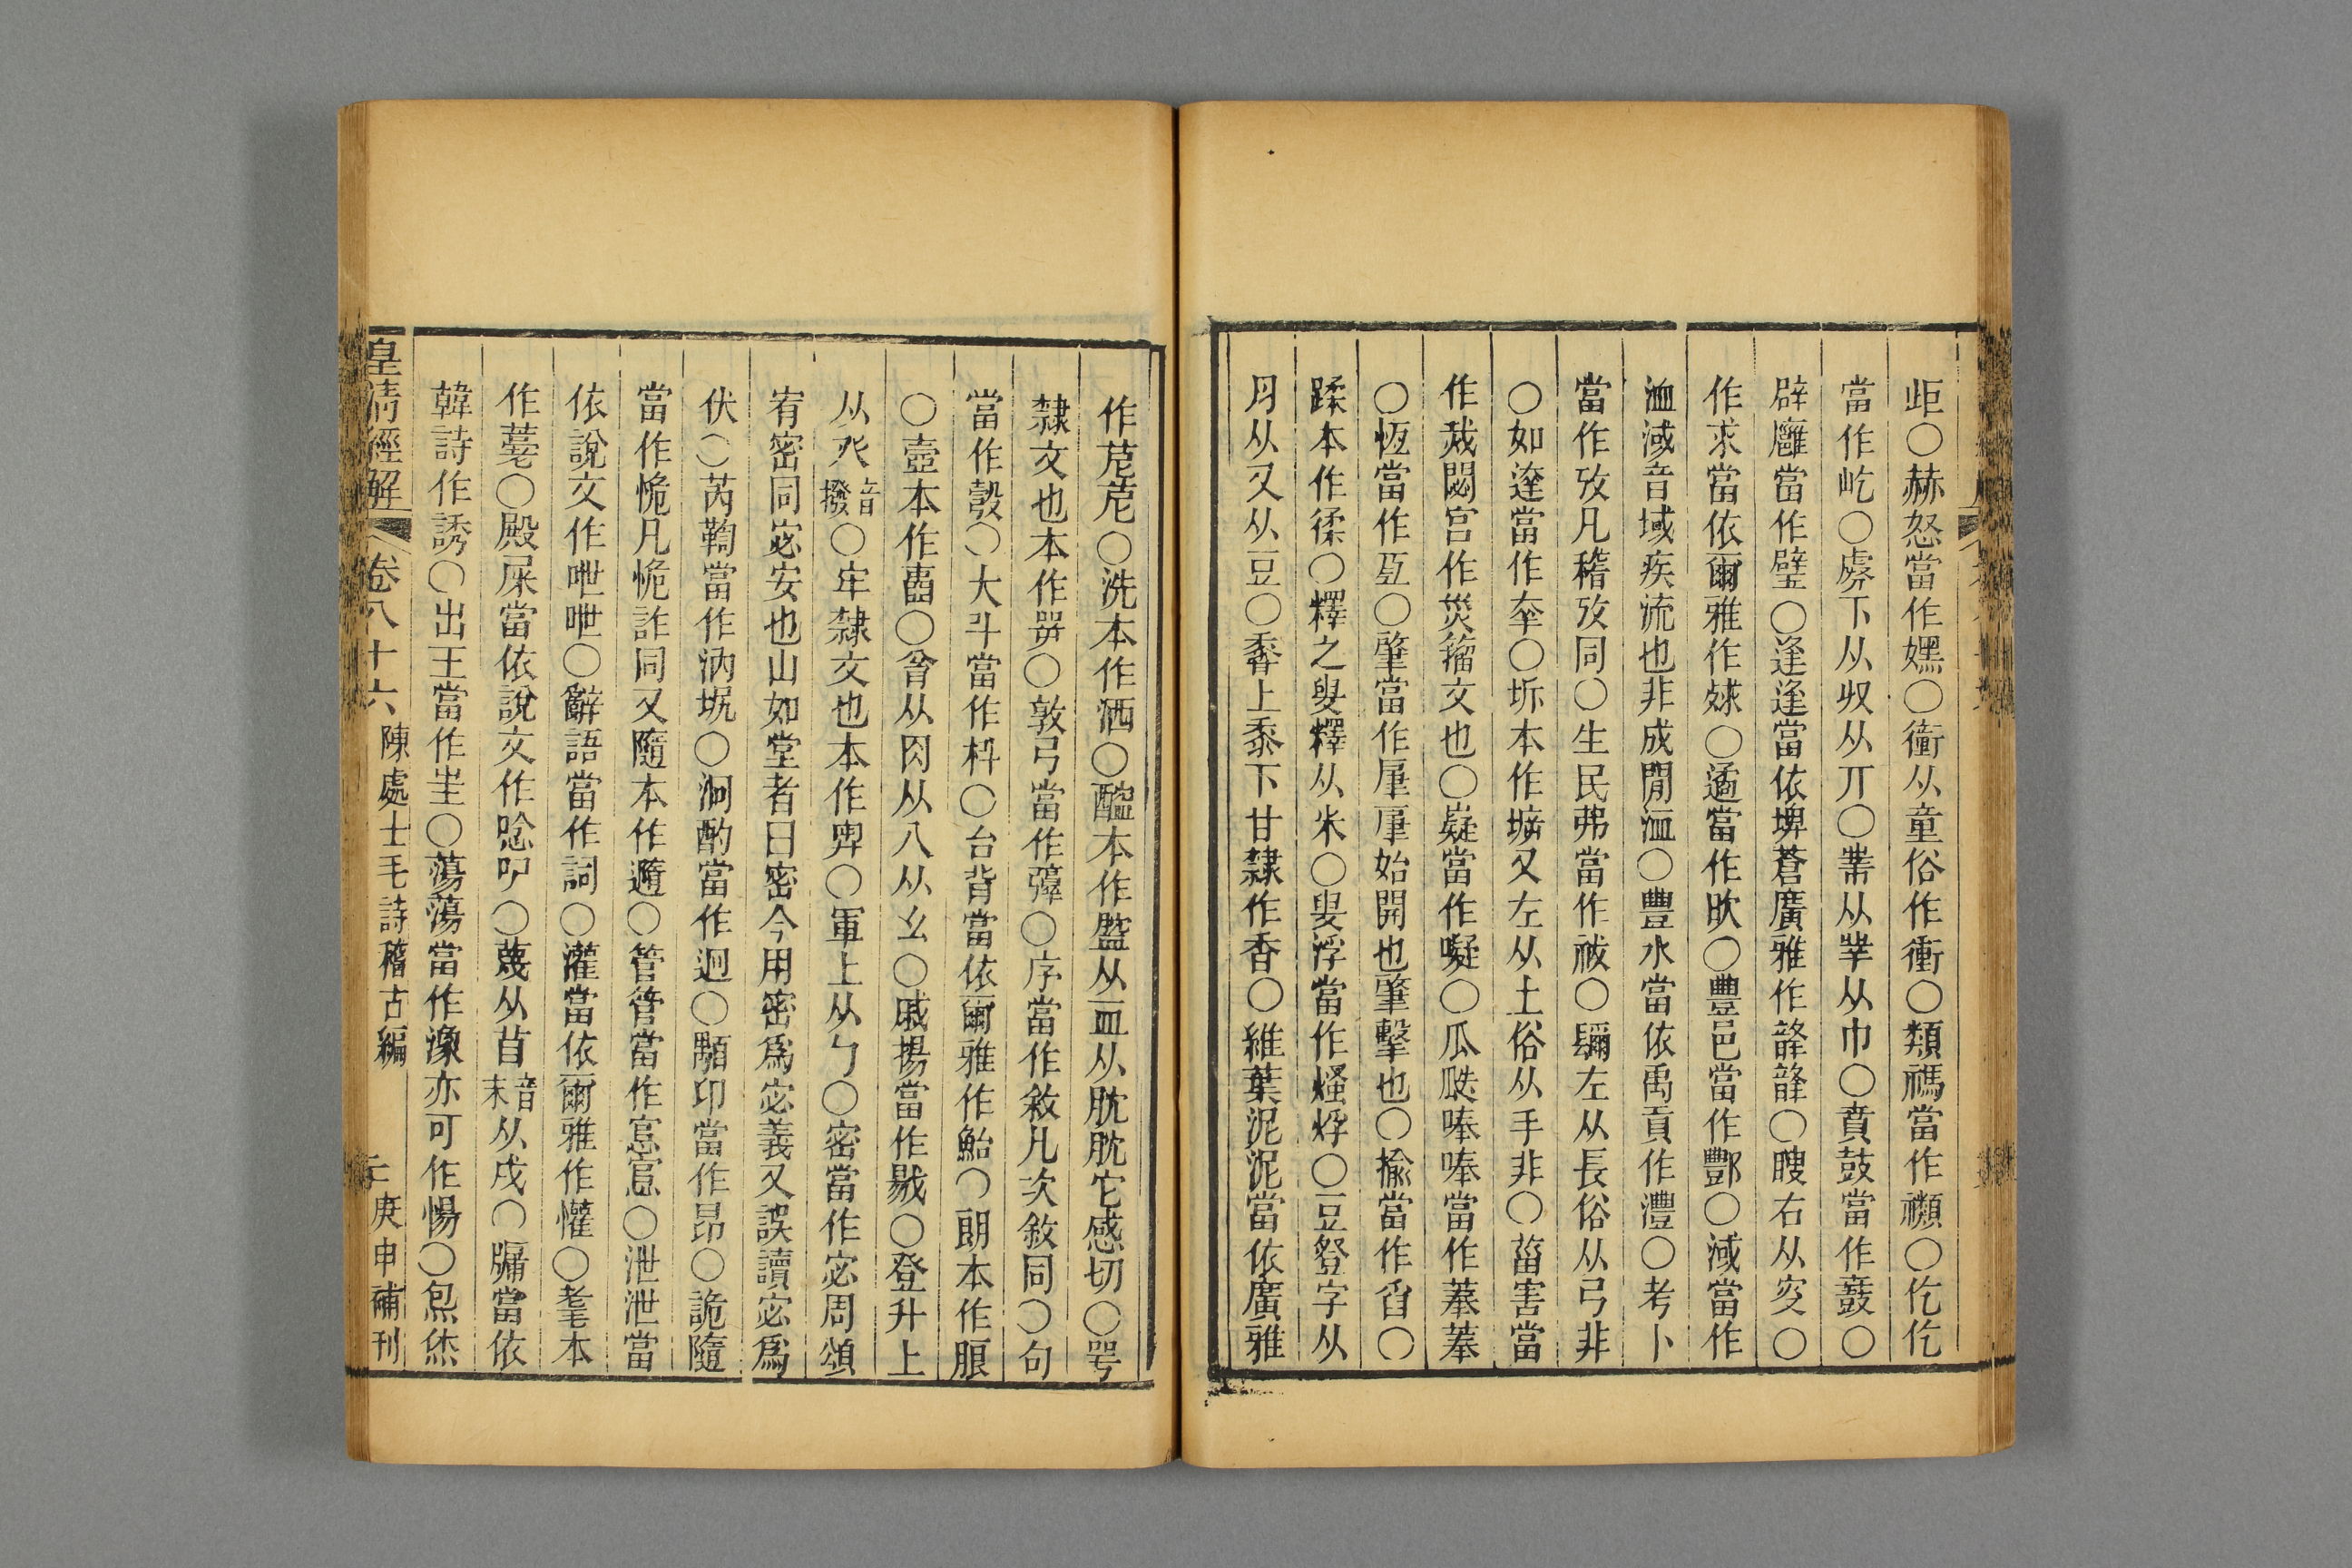 歫○赫怒當作嚇○衝从童俗作衝○類禡當作禷○仡仡
當作屹○虡下从収从丌○業从丵从巾○賁鼓當作鼖○
辟廱當作璧○逢逢當依埤蒼廣雅作韸韸○瞍右从㕟○
作求當依爾雅作㛏○遹當作欥○豐邑當作酆○淢當作
洫淢音域疾流也非成閒洫○豐水當依禹貢作灃○考卜
當作攷凡稽攷同○生民弗當作祓○镾左从長俗从弓非
○如達當作羍○坼本作㙤又左从土俗从手非○菑害當
作烖閟宮作災籀文也○嶷當作㘈○瓜瓞唪唪當作菶菶
○恆當作亙○肇當作肁肁始開也肇擊也○揄當作舀○
蹂本作猱○釋之叟釋从米○叟浮當作熮烰○豆豋字从
⺼从又从豆○馨上黍下甘隸作香○維葉泥泥當依廣雅
作苨苨○洗本作洒○醓本作䀋从血从肬肬它感切○咢
隸文也本作㖾○敦弓當作弴○序當作敘凡次敘同○句
當作彀○大斗當作枓○台背當依爾雅作鮐○朗本作朖
○壼本作𡈴○胷从肉从八从幺○戚揚當作鏚○登升上
从癶<音撥>○牢隸文也本作𤘾○軍上从勹○密當作宓周頌
宥密同宓安也山如堂者曰密今用密爲宓義又誤讀宓爲
伏○芮鞫當作汭坭○泂酌當作迥○顒卬當作昂○詭隨
當作恑凡恑詐同又隨本作䢫○管管當作悹悹○泄泄當
依說文作呭呭○辭語當作詞○灌當依爾雅作懽○耄本
作薹○殿屎當依說文作唸吚○蔑从苜<音末>从戍○牖當依
韓詩作誘○出王當作㞷○蕩蕩當作潒亦可作愓○炰烋
皇清經解 卷八十六 陳處士毛詩稽古編 庚申補刊